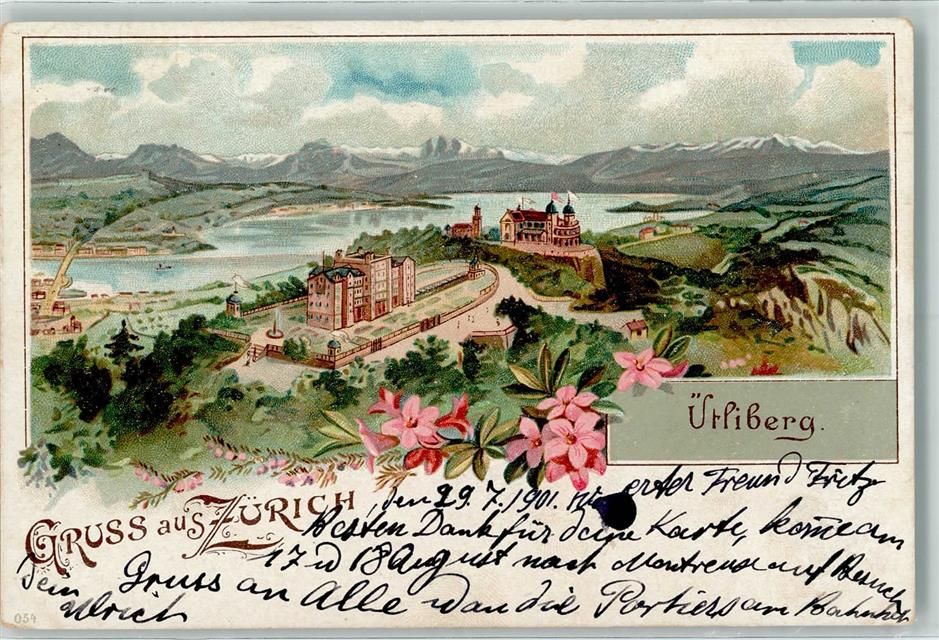 Ütliberg.
GRUSS aus ZÜRICH, den 29.7.1901. erter Freund Fritz
Besten Dank für deine Karte, kome am
17 u 18 August nach Montreux auf Besuch
Gruss an Alle die Portiers am Bahnhof
Dein
Ulrich
054